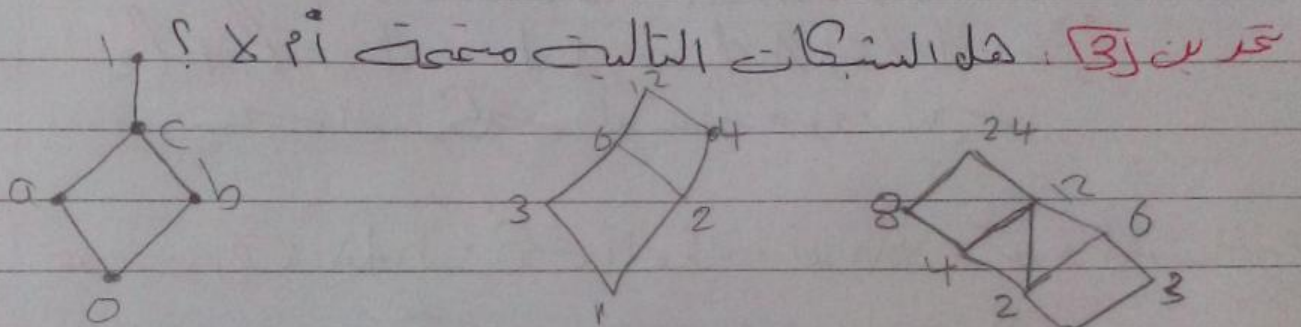 تمرين [3]. هل الشبكات التالية متممة أم لا؟
1
c
a b
0
12
6 4
3 2
1
24
8 12
6
4
2 3